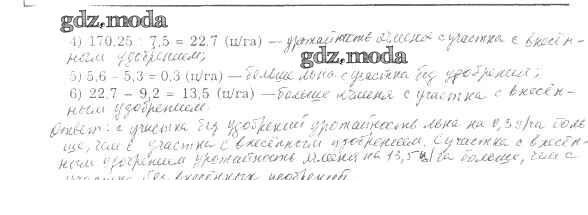 gdz.moda
4) 170,25 : 7,5 = 22,7 (ц/га) — урожайность ячменя с участка с внесён-
ным удобрением;
gdz.moda
5) 5,6 – 5,3 = 0,3 (ц/га) — больше льна с участка без удобрений;
6) 22,7 – 9,2 = 13,5 (ц/га) — больше ячменя с участка с внесён-
ным удобрением.
Ответ: с участка без удобрений урожайность льна на 0,3 ц/га боль
ше, чем с участка с внесённым удобрением. С участка с внесён-
ным удобрением урожайность ячменя на 13,5 ц/га больше, чем с
участка без внесённых удобрений.